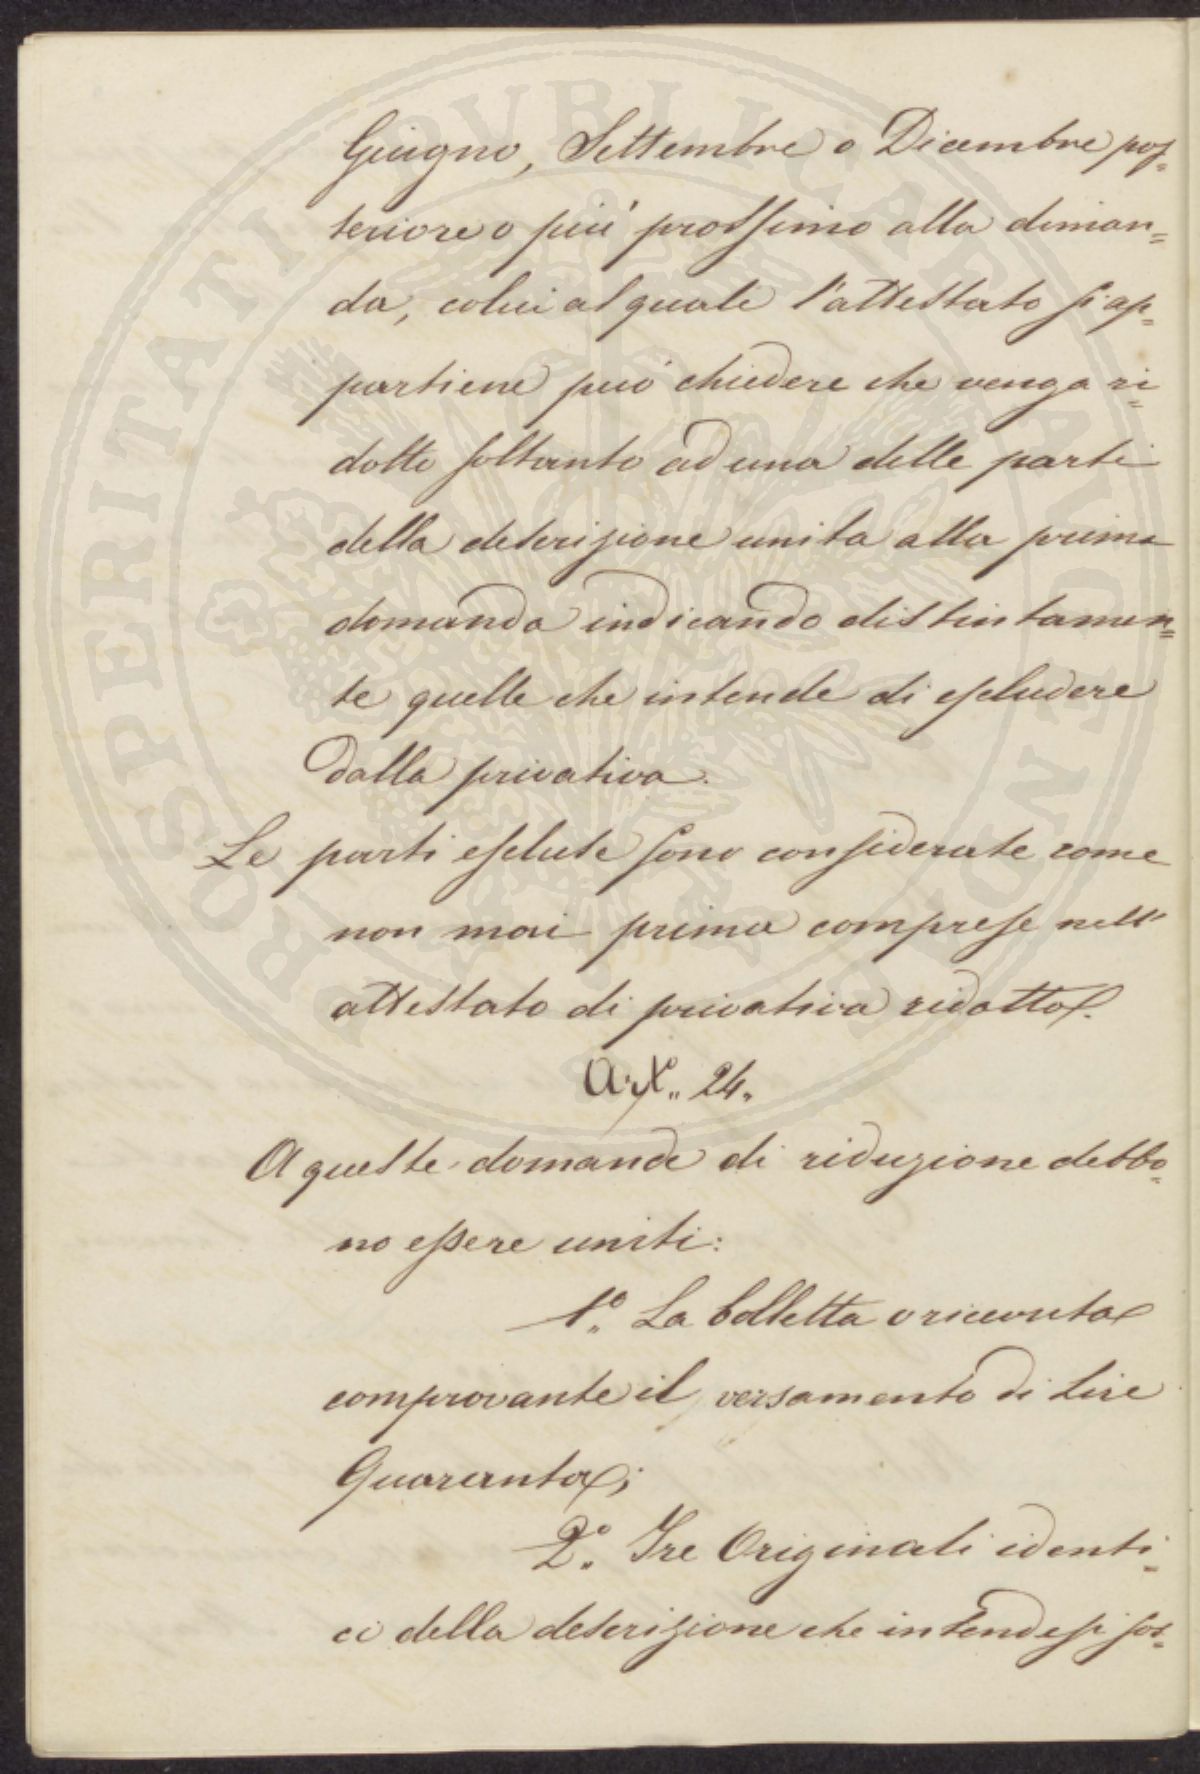 Giugno, Settembre o Dicembre pos=
teriore o più prossimo alla diman=
da, colui al quale l'attestato si ap=
partiene può chiedere che venga ri=
dotto soltanto ad una delle parti
della descrizione unita alla prima
domanda indicando distintamen=
te quelle che intende di escludere
dalla privativa.
Le parti escluse sono considerate come
non mai prima comprese nell'
attestato di privativa ridotto.
Art.. 24.
A queste domande di riduzione debbo=
no essere uniti:
1.° La bolletta o ricevuta
comprovante il versamento di Lire
Quaranta;
2.° Tre Originali identi=
ci della descrizione che intendesi sos=
PROSPERITATI PUBLICAE AUGENDAE